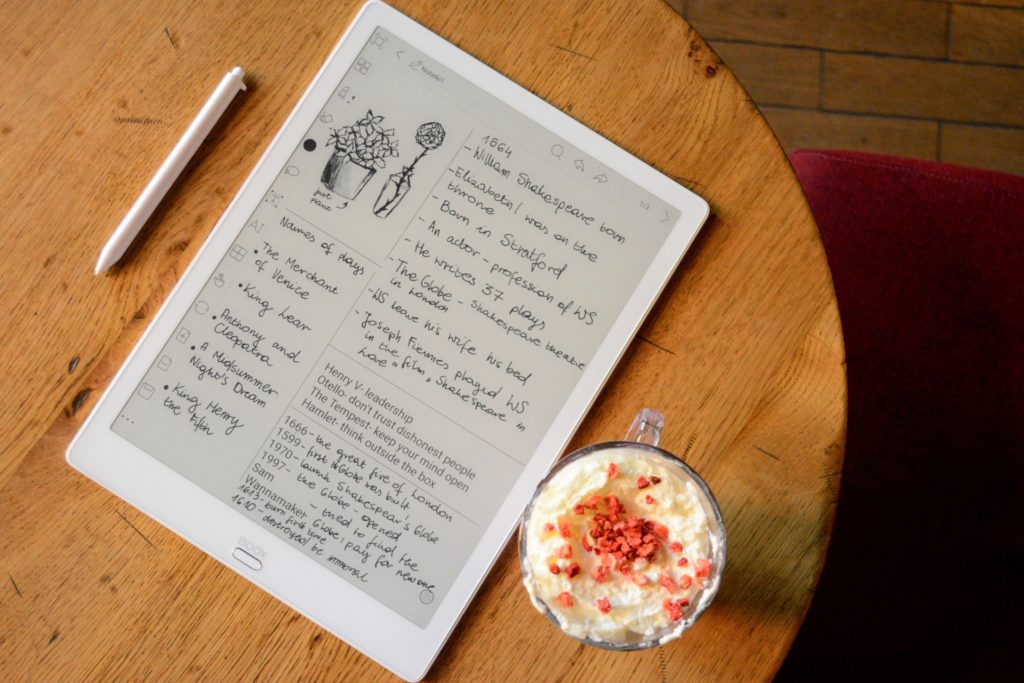 Notatki1
1/3
just
plane
Names of plays
• The Merchant
of Venice
• King Lear
• Anthony and
Cleopatra
• A Midsummer
Night's Dream
• King Henry
the Fifth
1564
- William Shakespeare born
- Elizabeth I was on the
throne
- Born in Stratford
- An actor - profession of WS
- He writes 37 plays
- The Globe - Shakespeare theatre
in London
- WS leave his wife his bed
- Joseph Fiennes played WS
in the film „ Shakespeare in
Love "
Henry V- leadership
Otello- don't trust dishonest people
The Tempest- keep your mind open
Hamlet- think outside the box
1666 - the great fire of London
1599 - first Globe was built
1970 - launch Shakespear's Globe
1997 - the Globe - opened
Sam
Wannamaker - tried to find the
Globe, pay for new one
1613 - burn first time
1610 - destroyed be immoral
BOOX